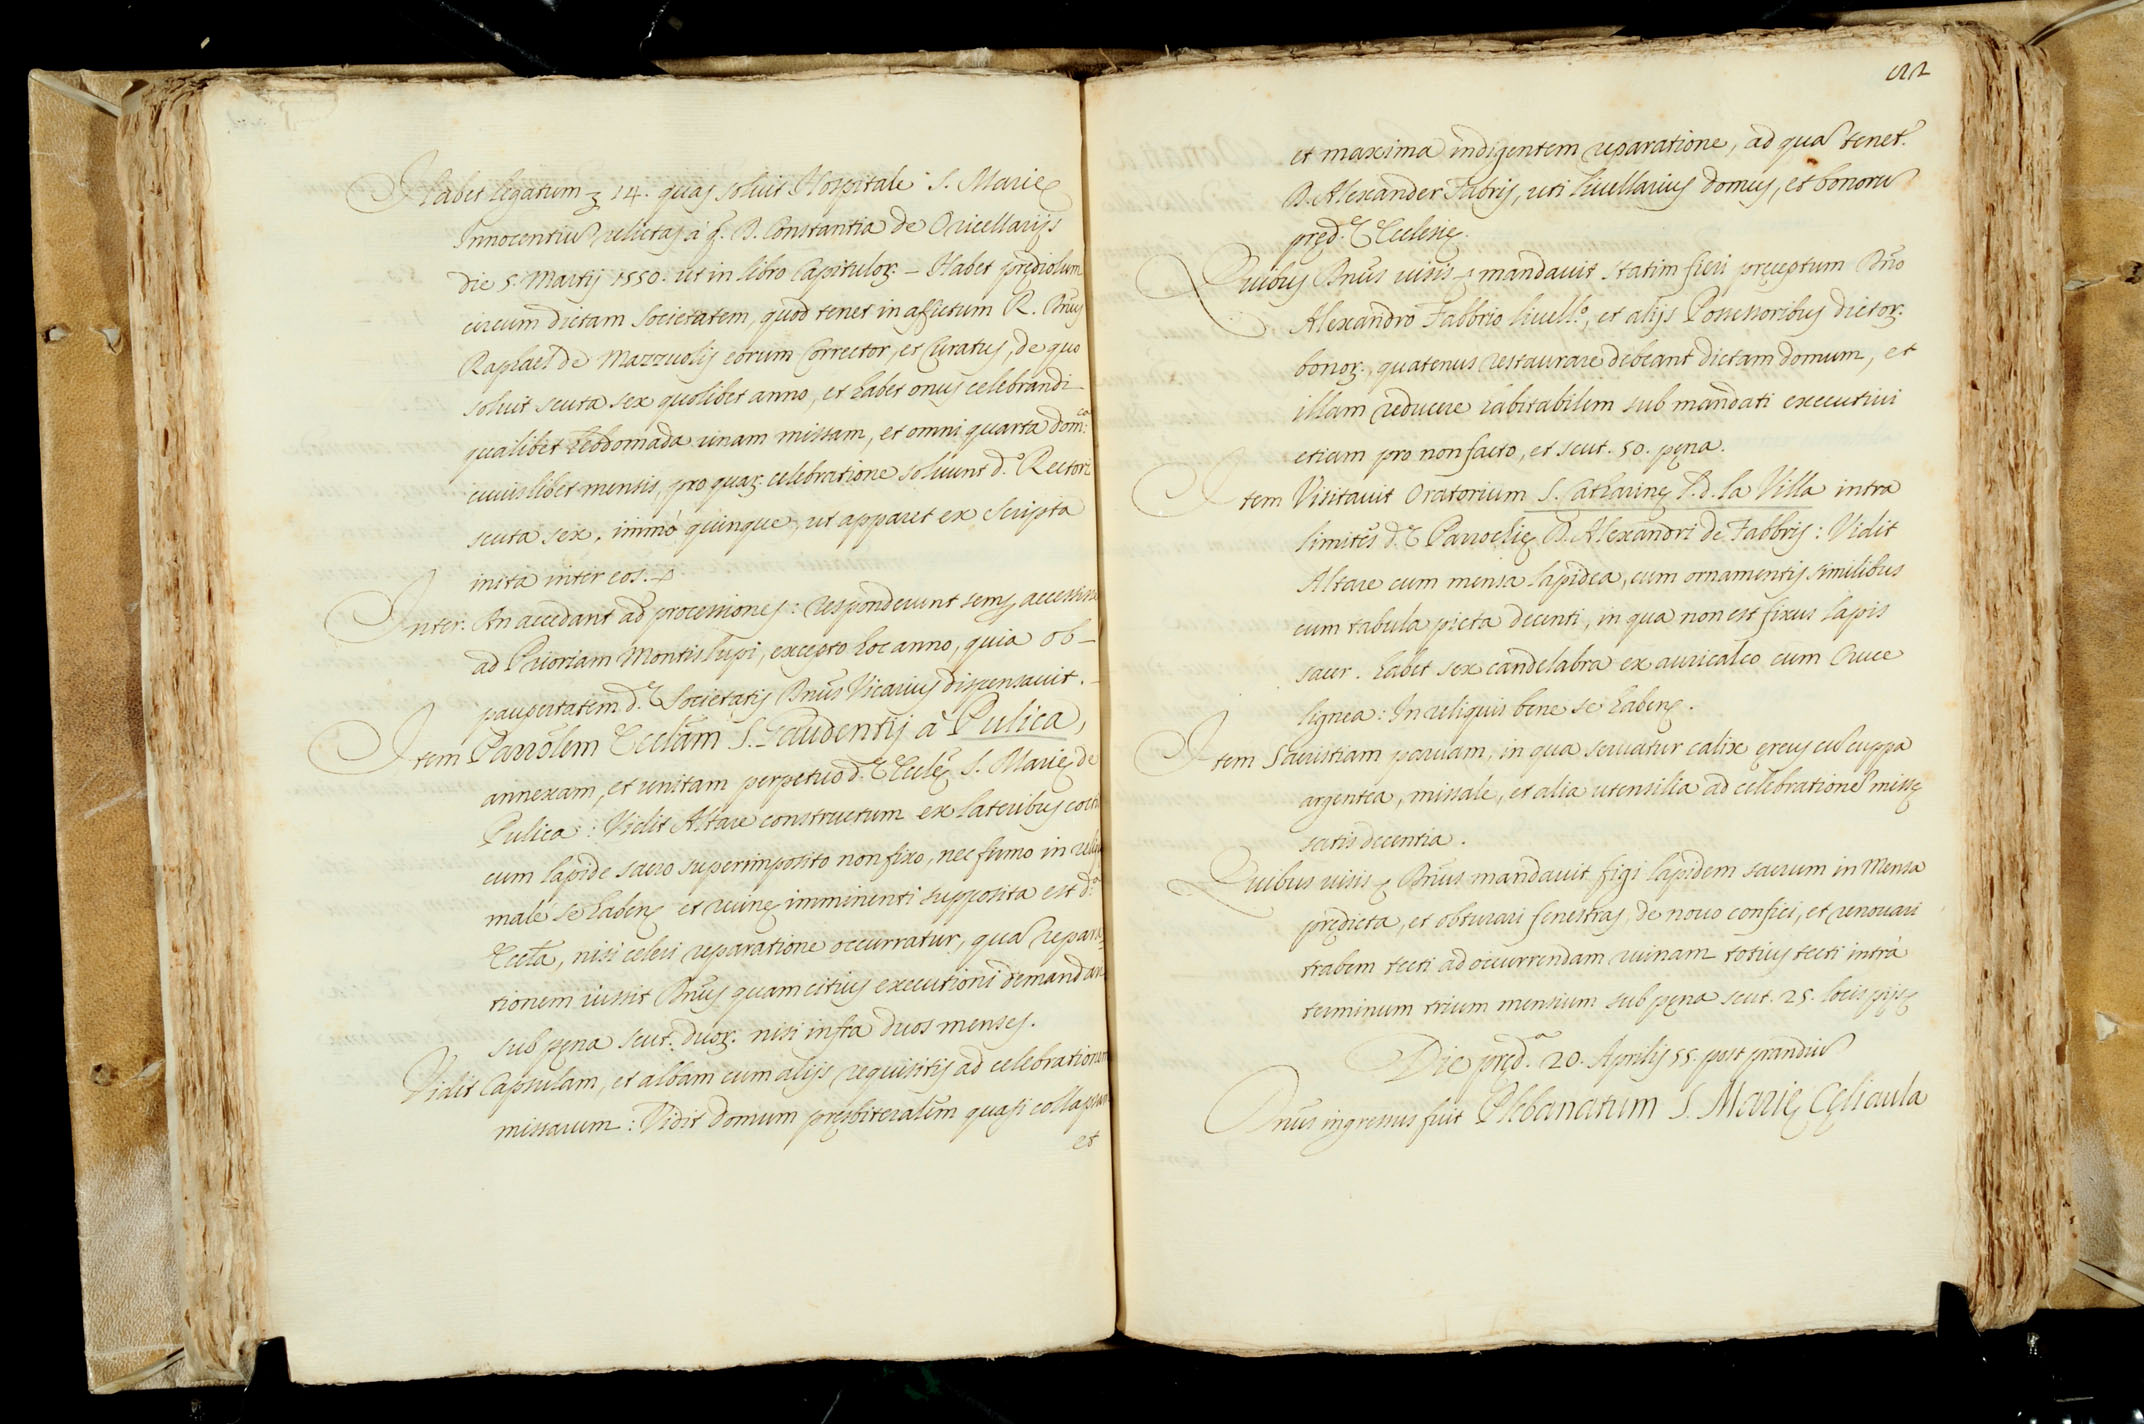 Habet legatum ʒ 14. quas soluit Hospitale S. Marię
Innocentiũ relictas à q. D. Constantia de Oricellarijs
die 5. Martij 1550. ut in libro Capitulor. – Habet prędiolum
circum dictam Societatem, quod tenet in affictum R. Dnũs
Raphael de Mazzuolis eorum Corrector, et Curatus, de quo
soluit scuta sex quolibet anno, et habet onus celebrandi
qualibet hebdomada unam missam, et omni quarta dom.ca
cuiuslibet mensis, pro quar. celebratione soluunt d.o Rectori
scuta sex, immò quinque, ut apparet ex scripta
inita inter eos.
Inter. An accedant ad processiones: responderunt semp accessisse
ad Prioriam Montislupi, excepto hoc anno, quia ob –
paupertatem d.ę Societatis Dnũs Vicarius dispensauit. –
Item Parrõlem Ecclãm S. Gaudentij à Pulica,
annexam, et unitam perpetuo d.ę Ecclę S. Marię de
Pulica: Vidit Altare constructum ex lateribus coctis
cum lapide sacro superimposito non fixo, nec firmo in reliq
malè se habens et ruinę imminenti supposita est d.a
Eccla, nisi celeri reparatione occurratur, quã repara
tionem iussit Dnũs quam citius executioni demandare
sub pęna scut. duor. nisi infra duos menses.
Vidit Capsulam, et albam cum alijs requisitis ad celebrationem
missarum: Vidit domum pręsbiteralem quasi collapsam
et
122
et maxima indigentem reparatione, ad quã tenet.
D. Alexander Fabris, uti liuellarius domus, et bonorũ
pręd.ę Ecclesię.
Quibus Dnũs uisis mandauit statim fieri pręceptum Dño
Alexandro Fabbrio liuell.o, et alijs Possessoribus dictor.
bonor., quatenus restaurare debeant dictam domum, et
illam reducere habitabilem sub mandati executiui
etiam pro non facto, et scut. 50. pęna.
Item Visitauit Oratorium S. Catharinę P.d. la Villa intra
limites d.ę Parrochię D. Alexandri de Fabbris: Vidit
Altare cum mensa lapidea, cum ornamentis similibus
cum tabula picta decenti, in qua non est fixus lapis
sacer. habet sex candelabra ex auricalco cum Cruce
lignea: In reliquis bene se habens.
Item Sacristiam paruam, in qua seruatur calix ęreus cũ cuppa
argentea, missale, et alia utensilia ad celebrationẽ missę
satis decentia.
Quibus uisis Dnũs mandauit figi lapidem sacrum in Mensa
prędicta, et obturari fenestras, de nouo confici, et renouari
trabem tecti ad occurrendam ruinam totius tecti intrà
terminum trium mensium sub pęna scut. 25. locis pijs
Die pręd.a 20. Aprilis 55. post prandiũ
Dnũs ingressus fuit Plebanatum S. Marię Cęliaula